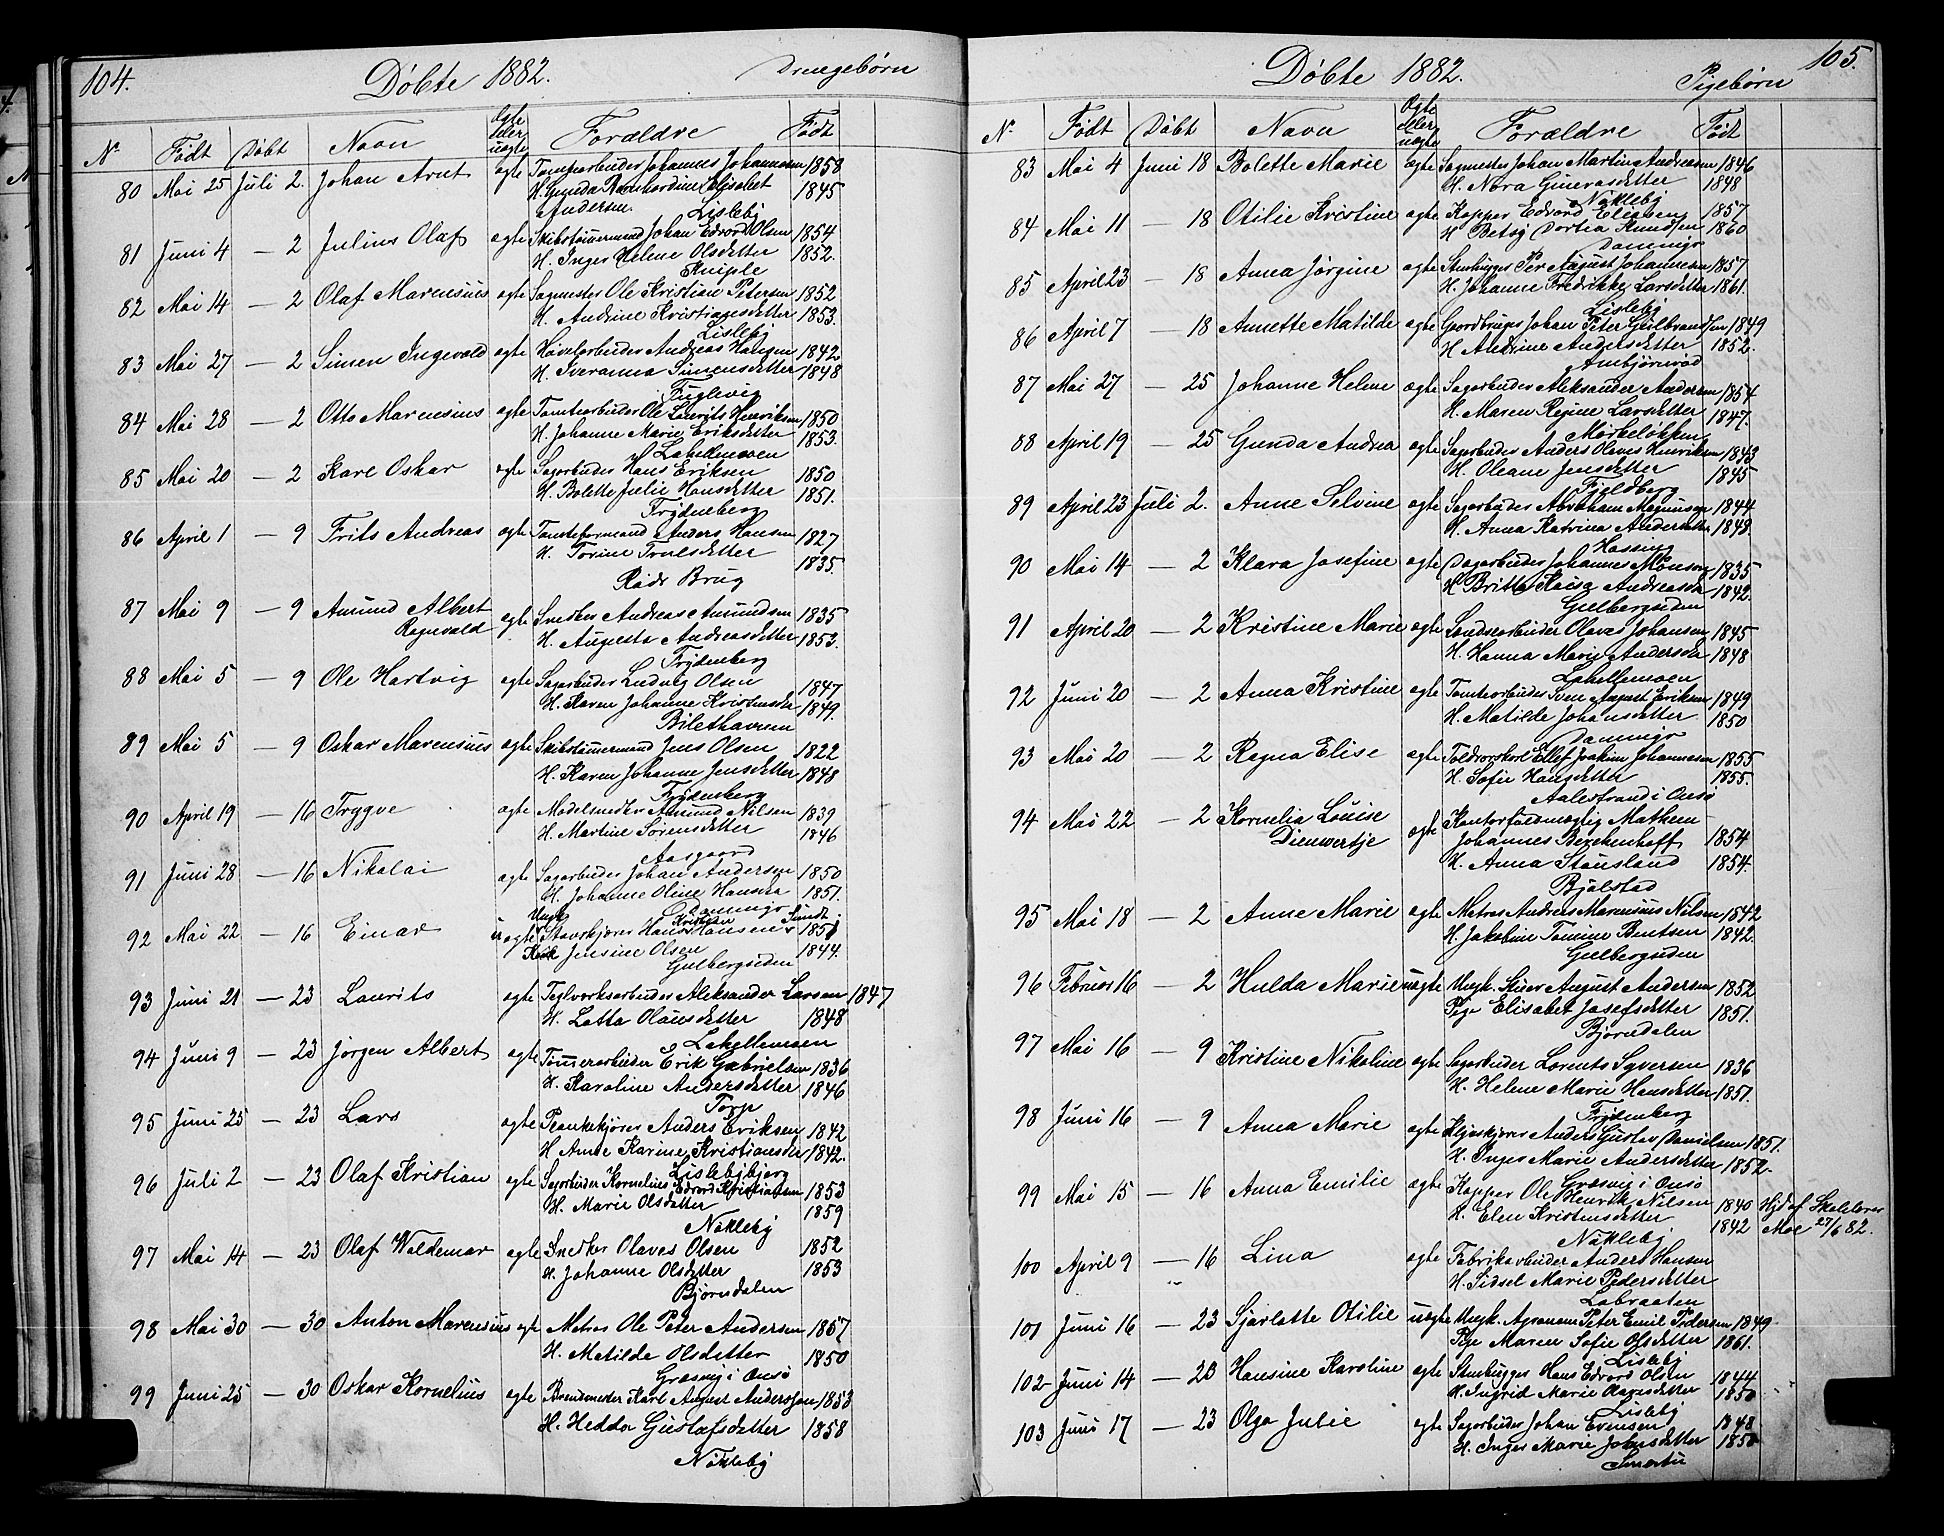 104.
Döbte 1882.
Drengebørn
Nr. Födt Döbt Navn Ægte eller uægte Forældre Födt
80 Mai 25 Juli 2. Johan Arnt ægte Tomtearbeider Johannes Johannesen 1858
H. Gunda Elisabet 1845
Andersen. Lisleby
81 Juni 4 — 2 Julius Olaf ægte Skibstömermand Johan Edvard Olsen 1854
H. Inger Helene Olsdatter 1852.
Kniple
82 Mai 14 — 2 Olaf Marensius ægte Sagmester Ole Kristian Petersen 1852
H. Andrine Kristiansdatter 1853.
Lisleby
83 Mai 27 — 2 Simen Ingevald ægte Hövelarbeider Andreas Haugen 1842
H. Sveranna Simensdatter 1848
Fuglevig
84 Mai 28 — 2 Otto Marensius ægte Tomtearbeider Ole Laurits Henriksen 1850
H. Johanne Marie Eriksdatter 1853.
Lahellemoen
85 Mai 20 — 2 Karl Oskar ægte Sagarbeider Hans Eriksen 1850
H. Bolette Julie Hansdatter 1851.
Frydenberg
86 April 1 — 9 Frits Andreas ægte Tomteformand Anders Hansen 1827
H. Torine Trulsdatter 1835.
Röds Brug
87 Mai 9 — 9 Amund Albert ægte Snedker Andreas Amundsen 1835
Ragnvald H. Augusta Andreasdatter 1853.
Frydenberg
88 Mai 5 — 9 Ole Hartvig ægte Sagarbeider Ludvig Olsen 1847
H. Karen Johanne Kristensdr 1849.
89 Mai 5 — 9 Oskar Marensius ægte Skibstömermand Jens Olsen 1822
H. Karen Johanne Jensdatter 1848
Frydenberg
90 April 19 — 16 Trygve ægte Amund Nilsen 1839
H. Martine Sörensdatter 1846
Aasgaard
91 Juni 28 — 16 Nikolai ægte Sagarbeider Johan Andersen 1850
H. Johanne Oline Hansen 1851.
Damming
92 Mai 22 — 16 Einar uægte Ungk. Stavkjörer Hans Kristian Hansen Sundt 1851
Jensine Olsen 1844.
Gulbergsiden
93 Juni 21 — 23 Laurits ægte Teglverksarbeider Aleksander Larsen 1847
H. Lotta Olausdatter 1848
Lahellemoen
94 Juni 9 — 23 Jörgen Albert ægte Tömerarbeider Erik Gabrielsen 1836
H. Karoline Andersdatter 1846
Torp
95 Juni 25 — 23 Lars ægte Plankekjörer Anders Eriksen 1842
H. Anne Karine Kristiansdr 1842.
Lislebybjerg
96 Juli 2 — 23 Olaf Kristian ægte Sagarbeider Kornelius Edvard Kristiansen 1853
H. Marie Olsdatter 1859
Nökleby
97 Mai 14 — 23 Olaf Waldemar ægte Snedker Olaves Olsen 1852
H. Johanne Olsdatter 1853
Björndalen
98 Mai 30 — 30 Anton Marensius ægte Matros Ole Peter Andersen 1857
H. Matilde Olsdatter 1850
Græsvig i Onsö
99 Juni 25 — 30 Oskar Kornelius ægte Karl August Andersson 1853
H. Hedda Gustafsdatter 1858
Nökleby
105.
Döbte 1882.
Pigebørn
Nr. Födt Döbt Navn Ægte eller uægte Forældre Födt
83 Mai 4 Juni 18 Bolette Marie ægte Sagmester Johan Martin Andreasen 1846
H. Nora Gunerasdatter 1848
Nökleby
84 Mai 11 — 18 Otilie Kristine ægte Kopper Edvard Eliasen 1857
H. Betsy Dortea Knudsen 1860
Damming
85 April 23 — 18 Anna Jörgine ægte Stenhugger Per August Johannesen 1857
H. Johanne Fredrikke Larsdatter 1861.
Lisleby
86 April 7 — 18 Annette Matilde ægte Gaardbruger Johan Peter Gulbrandsen 1849
H. Andrine Andersdatter 1852.
Ambjörnröd
87 Mai 27 — 25 Johanne Helene ægte Sagarbeider Aleksander Andersen 1854
H. Maren Regine Larsdatter 1847.
Mörkelökken
88 April 19 — 25 Gunda Andrea ægte Sagarbeider Anders Olaves Henriksen 1843
H. Oleane Jensdatter 1845
Fjeldberg
89 April 23 Juli 2. Anne Selvine ægte Sagarbeider Abraham Magnussen 1844
H. Anna Katrina Andersdatter 1848.
Hassing
90 Mai 14 — 2 Klara Josefine ægte Dagarbeider Johannes Månson 1835
H. Britta Kaisa Andreasdr 1842.
Gulbergsiden
91 April 20 — 2 Kristine Marie ægte Landsearbeider Olaves Johansen 1845
H. Hanna Marie Andersdr 1848
Lahellemoen
92 Juni 20 — 2 Anna Kristine ægte Tomtearbeider Sven August Eriksen 1849
H. Matilde Johansdatter 1850
Damming
93 Mai 20 — 2 Ragna Elise ægte Toldvorskarl Ellef Joakim Johannesen 1855
H. Sofie Hansdatter 1855.
Aalestrand i Onsö
94 Mai 22 — 2 Kornelia Louise ægte Kontorfuldmægtig Mathem
Dieuwertje Johannes Berchenhoff 1854
H. Anna Stousland 1854.
Bjölstad
95 Mai 18 — 2 Anne Marie ægte Matros Andreas Marensius Nilsen 1842
H. Jakobine Tomine Bentsen 1842.
Gulbergsiden
96 Februar 16 — 2 Hulda Marie uægte Ungk. Skuer August Andersen 1852
Pige Elisabet Josefsdatter 1851.
Björndalen
97 Mai 16 — 9 Kristine Nikoline ægte Sagarbeider Lorents Syversen 1836
H. Helene Marie Hansdatter 1851.
Frydenberg
98 Juni 16 — 9 Anna Marie ægte Anders Gustav Danielsen 1851.
H. Inger Marie Andersdatter 1852
Græsvig i Onsö
99 Mai 15 — 16 Anna Emilie ægte Kopper Ole Henrik Nilsen 1840 Hjd af Skolelærer
H. Elen Kristensdatter 1842 Moe 27/6 82.
Nökleby
100 April 9 — 16 Lina ægte Fabrikarbeider Anders Hansen
H. Sidsel Marie Pedersdatter
Labraaten
101 Juni 16 — 23 Sjarlotte Otilie uægte Ungk. Agronom Peter Emil Pedersen 1849
Pige Maren Sofie Olsdatter 1861.
Lisleby
102 Juni 14 — 23 Hansine Karoline ægte Stenhugger Hans Edvard Olsen 1844
H. Ingrid Marie Olavesdatter 1850
Lisleby
103 Juni 17 — 23 Olga Julie ægte Sagarbeider Johan Evensen 1848
H. Inger Marie Johnsdatter 1850
Smertu